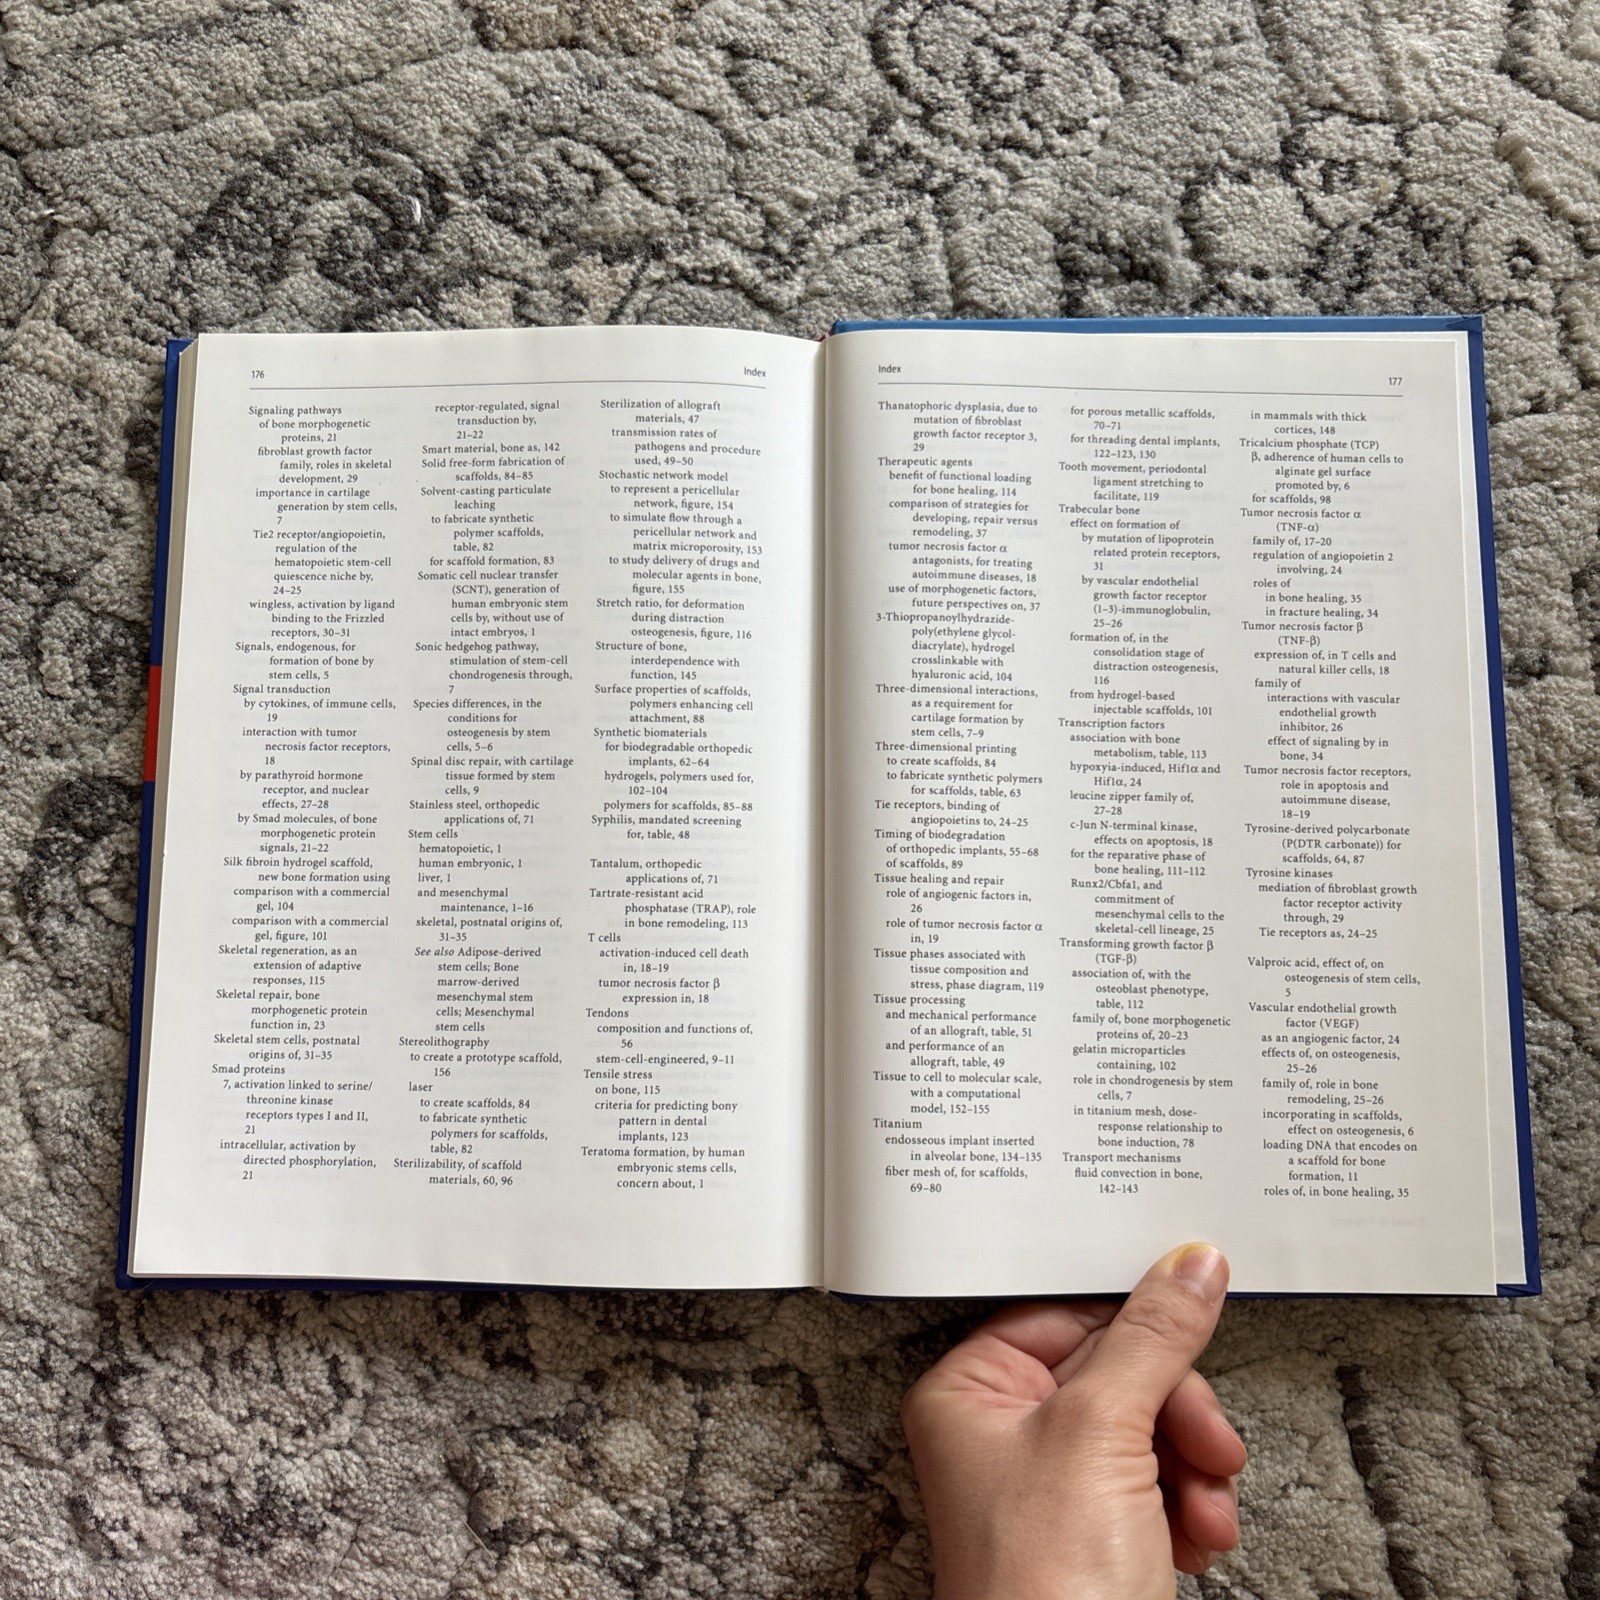 176
Index
Signaling pathways
of bone morphogenetic
proteins, 21
fibroblast growth factor
family, roles in skeletal
development, 29
importance in cartilage
generation by stem cells,
7
Tie2 receptor/angiopoietin,
regulation of the
hematopoietic stem-cell
quiescence niche by,
24–25
wingless, activation by ligand
binding to the Frizzled
receptors, 30–31
Signals, endogenous, for
formation of bone by
stem cells, 5
Signal transduction
by cytokines, of immune cells,
19
interaction with tumor
necrosis factor receptors,
18
by parathyroid hormone
receptor, and nuclear
effects, 27–28
by Smad molecules, of bone
morphogenetic protein
signals, 21–22
Silk fibroin hydrogel scaffold,
new bone formation using
comparison with a commercial
gel, 104
comparison with a commercial
gel, figure, 101
Skeletal regeneration, as an
extension of adaptive
responses, 115
Skeletal repair, bone
morphogenetic protein
function in, 23
Skeletal stem cells, postnatal
origins of, 31–35
Smad proteins
7, activation linked to serine/
threonine kinase
receptors types I and II,
21
intracellular, activation by
directed phosphorylation,
21
receptor-regulated, signal
transduction by,
21–22
Smart material, bone as, 142
Solid free-form fabrication of
scaffolds, 84–85
Solvent-casting particulate
leaching
to fabricate synthetic
polymer scaffolds,
table, 82
for scaffold formation, 83
Somatic cell nuclear transfer
(SCNT), generation of
human embryonic stem
cells by, without use of
intact embryos, 1
Sonic hedgehog pathway,
stimulation of stem-cell
chondrogenesis through,
7
Species differences, in the
conditions for
osteogenesis by stem
cells, 5–6
Spinal disc repair, with cartilage
tissue formed by stem
cells, 9
Stainless steel, orthopedic
applications of, 71
Stem cells
hematopoietic, 1
human embryonic, 1
liver, 1
and mesenchymal
maintenance, 1–16
skeletal, postnatal origins of,
31–35
See also Adipose-derived
stem cells; Bone
marrow-derived
mesenchymal stem
cells; Mesenchymal
stem cells
Stereolithography
to create a prototype scaffold,
156
laser
to create scaffolds, 84
to fabricate synthetic
polymers for scaffolds,
table, 82
Sterilizability, of scaffold
materials, 60, 96
Sterilization of allograft
materials, 47
transmission rates of
pathogens and procedure
used, 49–50
Stochastic network model
to represent a pericellular
network, figure, 154
to simulate flow through a
pericellular network and
matrix microporosity, 153
to study delivery of drugs and
molecular agents in bone,
figure, 155
Stretch ratio, for deformation
during distraction
osteogenesis, figure, 116
Structure of bone,
interdependence with
function, 145
Surface properties of scaffolds,
polymers enhancing cell
attachment, 88
Synthetic biomaterials
for biodegradable orthopedic
implants, 62–64
hydrogels, polymers used for,
102–104
polymers for scaffolds, 85–88
Syphilis, mandated screening
for, table, 48
Tantalum, orthopedic
applications of, 71
Tartrate-resistant acid
phosphatase (TRAP), role
in bone remodeling, 113
T cells
activation-induced cell death
in, 18–19
tumor necrosis factor β
expression in, 18
Tendons
composition and functions of,
56
stem-cell-engineered, 9–11
Tensile stress
on bone, 115
criteria for predicting bony
pattern in dental
implants, 123
Teratoma formation, by human
embryonic stems cells,
concern about, 1
Index
177
Thanatophoric dysplasia, due to
mutation of fibroblast
growth factor receptor 3,
29
Therapeutic agents
benefit of functional loading
for bone healing, 114
comparison of strategies for
developing, repair versus
remodeling, 37
tumor necrosis factor α
antagonists, for treating
autoimmune diseases, 18
use of morphogenetic factors,
future perspectives on, 37
3-Thiopropanoylhydrazide-
poly(ethylene glycol-
diacrylate), hydrogel
crosslinkable with
hyaluronic acid, 104
Three-dimensional interactions,
as a requirement for
cartilage formation by
stem cells, 7–9
Three-dimensional printing
to create scaffolds, 84
to fabricate synthetic polymers
for scaffolds, table, 63
Tie receptors, binding of
angiopoietins to, 24–25
Timing of biodegradation
of orthopedic implants, 55–68
of scaffolds, 89
Tissue healing and repair
role of angiogenic factors in,
26
role of tumor necrosis factor α
in, 19
Tissue phases associated with
tissue composition and
stress, phase diagram, 119
Tissue processing
and mechanical performance
of an allograft, table, 51
and performance of an
allograft, table, 49
Tissue to cell to molecular scale,
with a computational
model, 152–155
Titanium
endosseous implant inserted
in alveolar bone, 134–135
fiber mesh of, for scaffolds,
69–80
for porous metallic scaffolds,
70–71
for threading dental implants,
122–123, 130
Tooth movement, periodontal
ligament stretching to
facilitate, 119
Trabecular bone
effect on formation of
by mutation of lipoprotein
related protein receptors,
31
by vascular endothelial
growth factor receptor
(1–3)-immunoglobulin,
25–26
formation of, in the
consolidation stage of
distraction osteogenesis,
116
from hydrogel-based
injectable scaffolds, 101
Transcription factors
association with bone
metabolism, table, 113
hypoxyia-induced, Hif1α and
Hif1α, 24
leucine zipper family of,
27–28
c-Jun N-terminal kinase,
effects on apoptosis, 18
for the reparative phase of
bone healing, 111–112
Runx2/Cbfa1, and
commitment of
mesenchymal cells to the
skeletal-cell lineage, 25
Transforming growth factor β
(TGF-β)
association of, with the
osteoblast phenotype,
table, 112
family of, bone morphogenetic
proteins of, 20–23
gelatin microparticles
containing, 102
role in chondrogenesis by stem
cells, 7
in titanium mesh, dose-
response relationship to
bone induction, 78
Transport mechanisms
fluid convection in bone,
142–143
in mammals with thick
cortices, 148
Tricalcium phosphate (TCP)
β, adherence of human cells to
alginate gel surface
promoted by, 6
for scaffolds, 98
Tumor necrosis factor α
(TNF-α)
family of, 17–20
regulation of angiopoietin 2
involving, 24
roles of
in bone healing, 35
in fracture healing, 34
Tumor necrosis factor β
(TNF-β)
expression of, in T cells and
natural killer cells, 18
family of
interactions with vascular
endothelial growth
inhibitor, 26
effect of signaling by in
bone, 34
Tumor necrosis factor receptors,
role in apoptosis and
autoimmune disease,
18–19
Tyrosine-derived polycarbonate
(P(DTR carbonate)) for
scaffolds, 64, 87
Tyrosine kinases
mediation of fibroblast growth
factor receptor activity
through, 29
Tie receptors as, 24–25
Valproic acid, effect of, on
osteogenesis of stem cells,
5
Vascular endothelial growth
factor (VEGF)
as an angiogenic factor, 24
effects of, on osteogenesis,
25–26
family of, role in bone
remodeling, 25–26
incorporating in scaffolds,
effect on osteogenesis, 6
loading DNA that encodes on
a scaffold for bone
formation, 11
roles of, in bone healing, 35